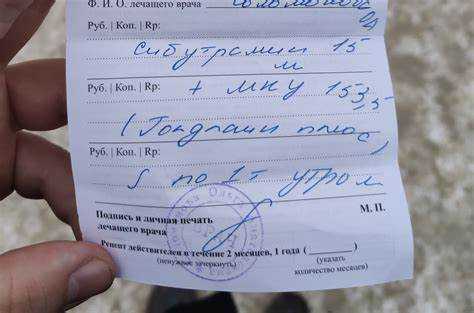 Ф. И. О. лечащего врача
Руб. | Коп. | Rp:
Сибутрамин 15
м
Руб. | Коп. | Rp:
+ МКЦ 153,5
(Голдлайн плюс)
Руб. | Коп. | Rp:
S по 1т утром
Подпись и личная печать М. П.
лечащего врача
Рецепт действителен в течение 2 месяцев, 1 года (________)
(ненужное зачеркнуть) (указать
количество месяцев)